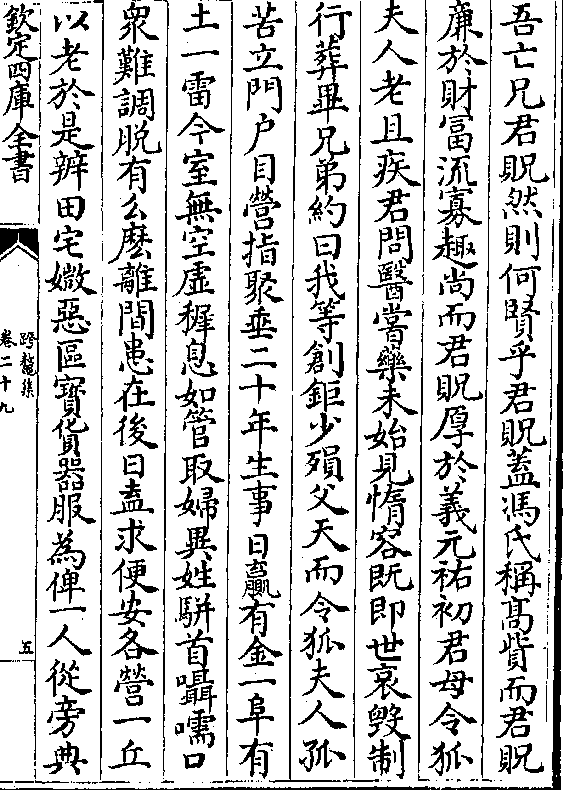 吾亡兄君貺然則何賢乎君貺蓋馮氏稱髙貲而君貺
廉於財富流寡趣尚而君貺厚於義元祐初君母令狐
夫人老且疾君問醫嘗藥未始見惰容既即世哀毁制
行葬畢兄弟約曰我等創鉅少殞父天而令狐夫人孤
苦立門户目營指聚垂二十年生事日贏有金一阜有
土一雷今室無空虚穉息如管取婦異姓駢首囁嚅口
衆難調脱有么麽離間患在後日盍求便安各營一丘
以老於是辨田宅媺惡區寳貨器服為俾一人從旁典
欽定四庫全書
跨鼇集
卷二十九
五